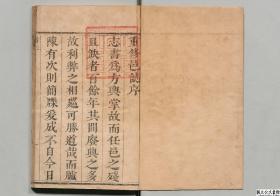 重修邑誌序
志書為方輿掌故而任邑之殘
且缺者百餘年其間廢興之多
故利弊之相繩可勝道哉而臚
陳有次則簡牒爰成不自今日